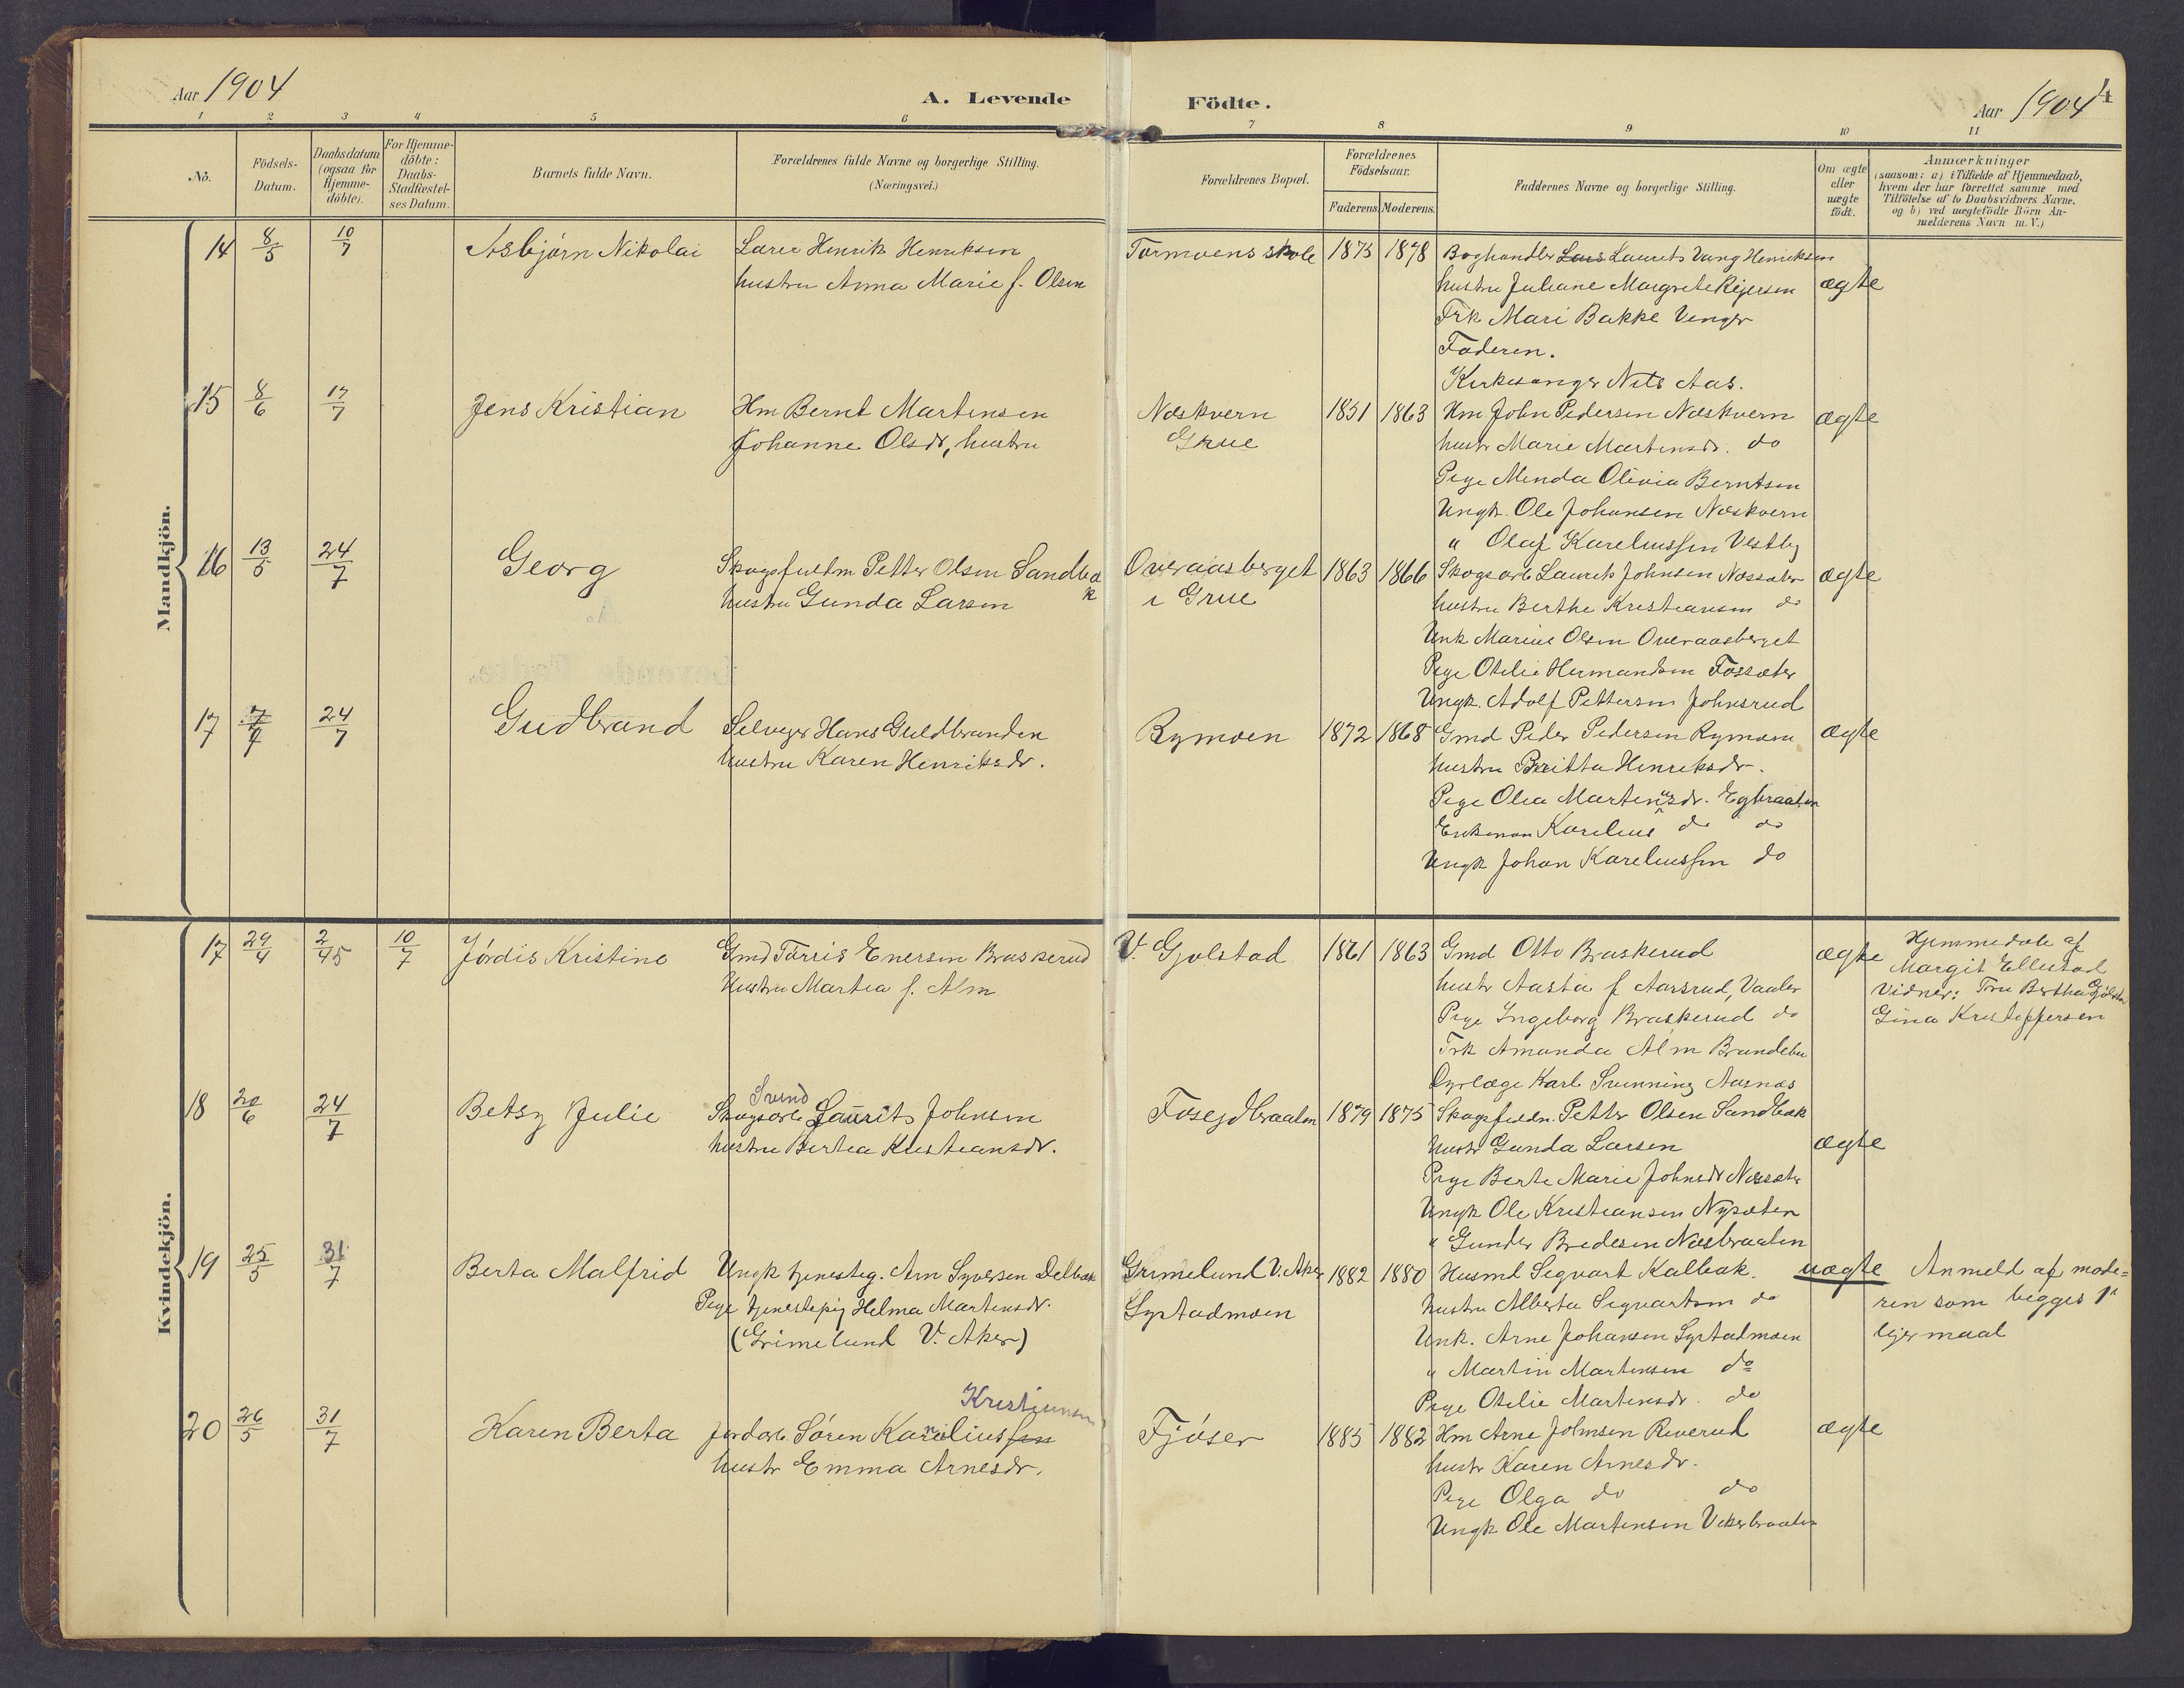 Aar 1904
A. Levende Födte.
Aar 1904
4
1 2 3 4 5 6 7 8 9 10 11
No.
Födsels-
Datum.
Daabsdatum
(ogsaa for
Hjemme-
döbte).
For Hjemme-
döbte:
Daabs-
Stadfæstel-
ses Datum.
Barnets fulde Navn.
Forældrenes fulde Navne og borgerlige Stilling.
(Næringsvei.)
Forældrenes Bopæl.
Forældrenes
Födselsaar.
Faderens. Moderens.
Faddernes Navne og borgerlige Stilling.
Om ægte
eller
uægte
födt.
Anmærkninger
(saasom: a) i Tilfælde af Hjemmedaab,
hvem der har forrettet samme med
Tilföielse af to Daabsvidners Navne,
og b) ved uægtefödte Börn An-
melderens Navn m. V.)
Mandkjön.
14 8/5 10/7 Asbjörn Nikolai
Lærer Henrik Henriksen
hustru Anna Marie f. Olsen
Tormoens skole 1875 1878
Boghandler Lars Laurits Vang Henriksen
hustru Juliane Margrete Rejersen
Frk Mari Bakke Venger
Faderen.
Kirkesanger Nils Aas.
ægte
15 8/6 17/7 Jens Kristian
Hm Bernt Martinsen
Johanne Olsdr, hustru
Næskvern
Grue
1851 1863
Hm John Pedersen Næskvern
hustr Marie Martinsdr. do
Pige Menda Olivia Berntsen
Ungk. Ole Johansen Næskvern
" Olaf Kareliussen Vestby
ægte
16 13/5 24/7 Georg
Skogsfuldm Petter Olsen Sandbæk
hustru Gunda Larsen
Overaasberget
i Grue
1863 1866
Skogsarb Laurits Johnsen Næssæter
hustru Berthe Kristiansen do
Unk Marius Olsen Overaasberget
Pige Otelie Hermandsen Fossæter
Ungk. Adolf Pettersen Johnsrud
ægte
17 7/7 24/7 Gudbrand
Selveger Hans Guldbrandsen
hustru Karen Henriksdr.
Rymoen 1872 1868
Gmd Peder Pedersen Rymoen
hustru Britta Henriksdr.
Pige Olea Martinusdr. Egbraaten
Enkeman Karelius do do
Ungk Johan Kareliussen do
ægte
Kvindekjön.
17 29/4 2/45 10/7 Jördis Kristine
Gmd Tørris Enersen Braskerud
Hustru Martea f. Alm
V. Gjølstad 1861 1863
Gmd Otto Braskerud
hustr Aasta f Aarsrud, Vaaler
Pige Ingeborg Braskerud do
Frk Amanda Alm Brandebu
Dyrlæge Karl Svenning Aasnæs
ægte
Hjemmedøbt af
Margit Ellestad
Vidner: Fru Bertha Gjölstad
Gina Kristoffersen
18 20/6 24/7 Betsy Julie
Svend
Skogsarb Laurits Johnsen
hustru Bertea Kristiansdr.
Fosejdbraaten 1879 1875
Skogsfuldm. Petter Olsen Sandbæk
hustr Gunda Larsen
Pige Berte Marie Johnsdr Næssæter
Ungk Ole Kristiansen Nysæter
" Gunder Bredesen Næsbraaten
ægte
19 25/5 31/7 Berta Malfrid
Ungk tjenesteg. Arn Syversen Delbæk
Pige tjenestepig Helma Martinsdr.
(Grimelund V. Aker)
Grimelund V. Aker
Systadmoen
1882 1880
Husmd Segvart Kalbak.
hustru Alberta Segvartsen do
Unk. Arne Johansen Systadmoen
" Martin Martinsen do
Pige Otelie Martinsdr. do
uægte
Anmeld af mode=
ren som begges 1ste
lejermaal
20 26/5 31/7 Karen Berta
Kristiansen
Jordarb. Sören Kareliussen
hustr Emma Arnesdr.
Fjöser 1885 1882
Hm Arne Johnsen Riverud
hustr Karen Arnesdr.
Pige Olga do do
Ungk Ole Martinsen Vikerbraaten
ægte